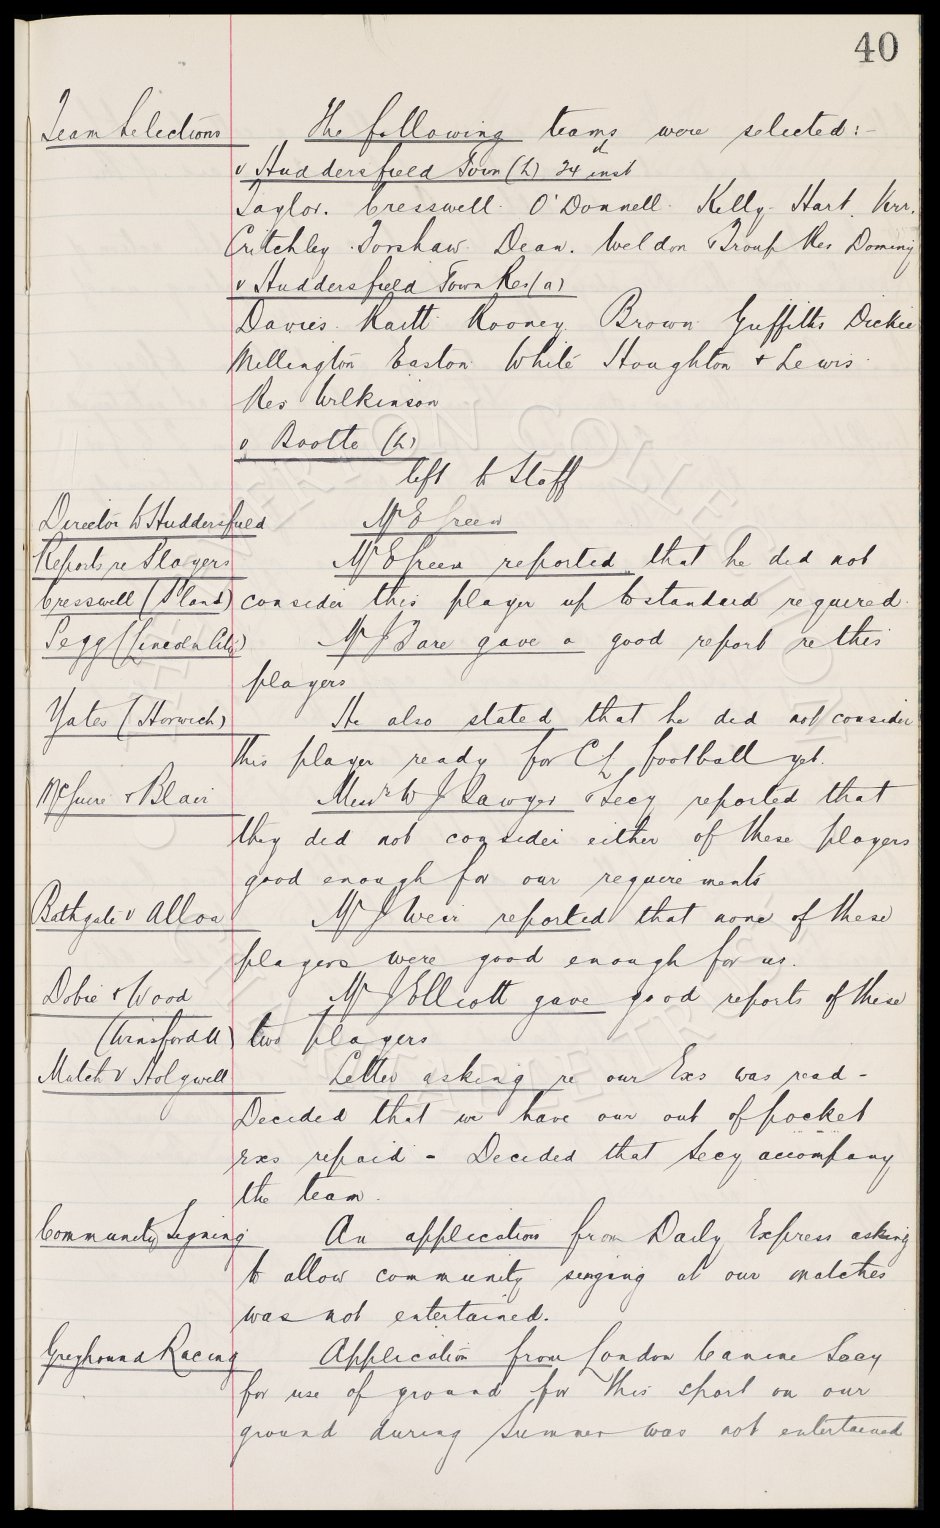 40
Team Selections The following teams were selected:-
v Huddersfield Town (h) 24th inst
Taylor. Cresswell. O'Donnell. Kelly. Hart. Kerr.
Critchley. Forshaw. Dean. Weldon & Troup Res Dominy
v Huddersfield Town Res (a)
Davies. Raitt. Rooney. Brown. Griffiths Dickie
Millington Easton. White Houghton & Lewis.
Res Wilkinson
v Bootle (h)
left to Staff
Director to Huddersfield Mr E Green
Reports re Players Mr E Green reported that he did not
Cresswell (S'land) consider this player up to standard required.
Pegg (Lincoln City) Mr J Bare gave a good report re this
players
Yates (Horwich) He also stated that he did not consider
this player ready for CL football yet.
McGuire & Blair Messrs W J Sawyer & Secy reported that
they did not consider either of these players
good enough for our requirements
Bathgate v Alloa Mr J Weir reported that none of these
players were good enough for us.
Dobie & Wood Mr J Elliott gave good reports of these
(Winsford U) two players
Match v Holywell Letter asking re our Exs was read -
Decided that we have our out of pocket
exs repaid - Decided that Secy accompany
the team.
Community Signing An application from Daily Express asking
to allow community singing at our matches
was not entertained.
Greyhound Racing Application from London Canine Socy
for use of ground for this sport on our
ground during Summer was not entertained